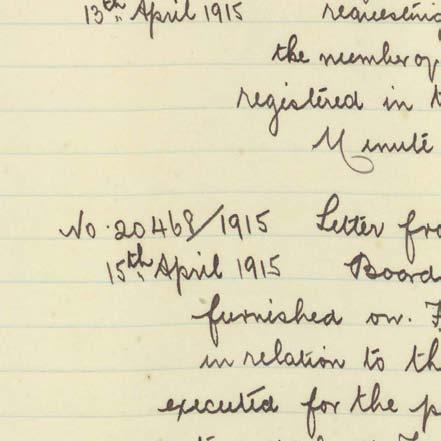 13th April 1915 requesting
the number of
registered in
Minute
No. 20468/1915 Letter
15th April 1915 Board
furnished on.
in relation to the
executed for the